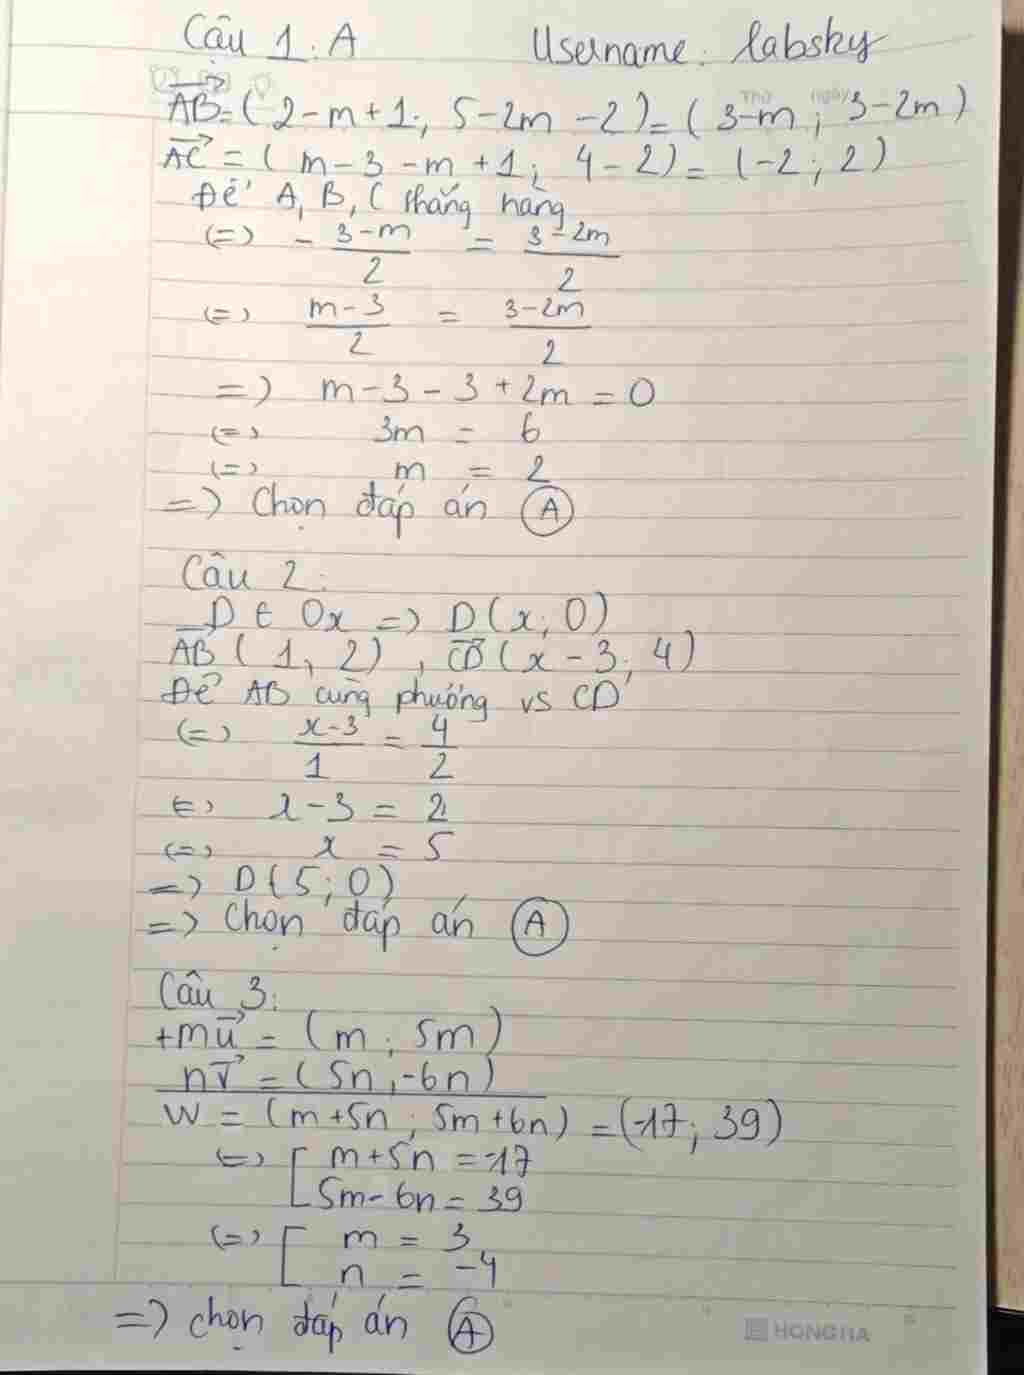 Câu 1: A Username: labsky
Thứ ngày
AB→ = (2-m+1; 5-2m-2) = (3-m; 3-2m)
AC→ = (m-3-m+1; 4-2) = (-2; 2)
Để A, B, C thẳng hàng
(=) - (3-m)/2 = (3-2m)/2
(=) (m-3)/2 = (3-2m)/2
=) m-3-3+2m = 0
(=) 3m = 6
(=) m = 2
=) Chọn đáp án A
Câu 2:
D ∈ Ox =) D(x; 0)
AB→ (1, 2), CD→ (x-3; 4)
Để AB cùng phương vs CD
(=) (x-3)/1 = 4/2
(=) x-3 = 2
(=) x = 5
=) D(5; 0)
=) Chọn đáp án A
Câu 3:
+mu→ = (m; 5m)
nv→ = (5n; -6n)
W = (m+5n; 5m+6n) = (-17; 39)
(=) [ m+5n = -17
5m-6n = 39
(=) [ m = 3
n = -4
=) chọn đáp án A
HONGHA